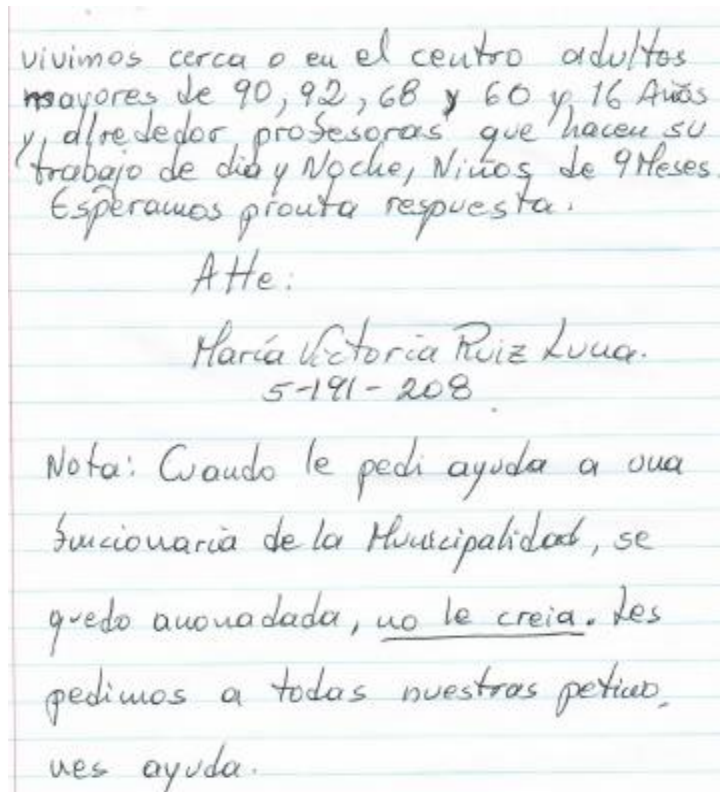 vivimos cerca o en el centro adultos
mayores de 90, 92, 68 y 60 y 16 Años
y, alrededor profesoras que hacen su
trabajo de dia y Noche, Niños de 9 Meses.
Esperamos pronta respuesta.
Atte:
María Victoria Ruiz Luna.
5-191-208
Nota: Cuando le pedi ayuda a una
funcionaria de la Municipalidad, se
quedo anonadada, no le creia. Les
pedimos a todas nuestras peticio,
nes ayuda.